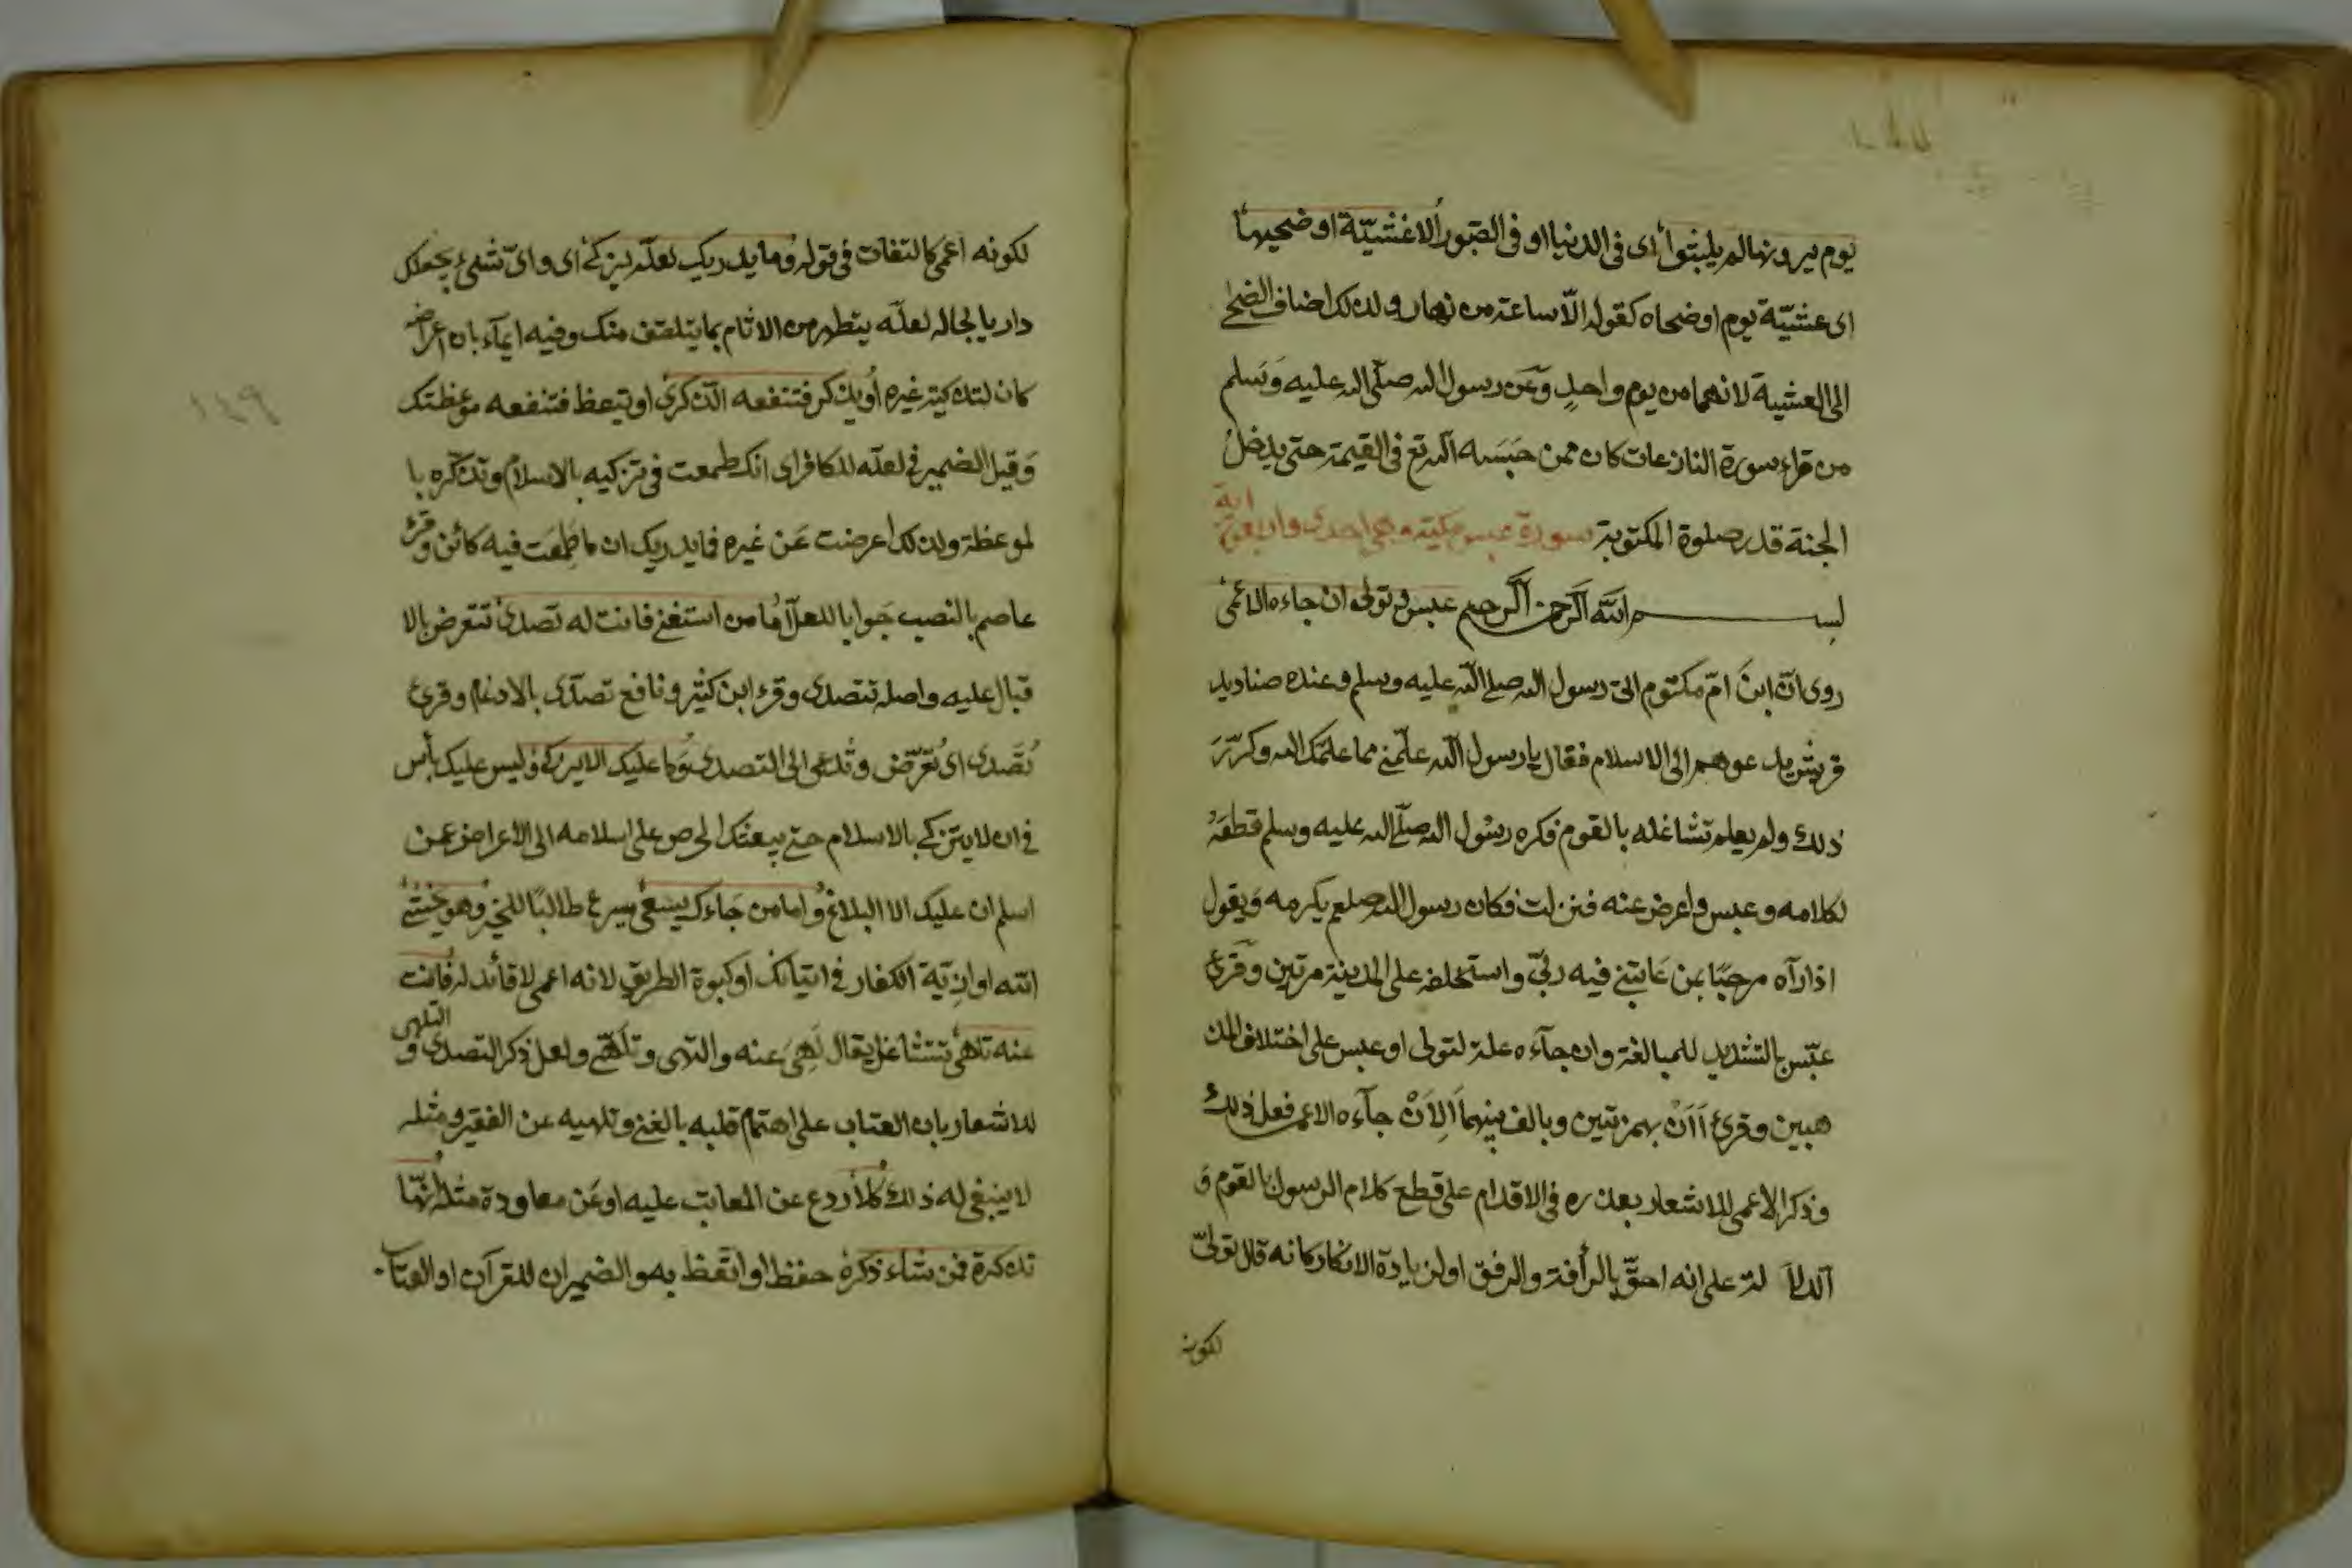 يوم يرونها لم يلبثوا اى فى الدنيا او فى القبور الا عشيّة او ضحيها
اى عشيّة يوم او ضحاه كقوله الّا ساعة من نهار ولذلك اضاف الضحى
الى العشية لانهما من يوم واحدٍ وَعَن رسول الله صلّى الله عليه وَسَلم
من قراء سورة النازعات كان ممن حَبَسَه الله تع فى القيمة حتى يدخل
الجنة قدر صلوة المكتوبة سورة عبس مكية وهى احدى واربعون اية
بسم الله الرحمن الرحيم عبس وتولى ان جاءه الاعمى
روى انّ ابنَ امّ مكتوم اتى رسول الله صلى الله عليه وسلم وعنده صناديد
قريش يدعوهم الى الاسلام فقال يا رسول الله علّمنى مما علمَّك الله وكرّرَ
ذلك ولم يعلم تشاغله بالقوم فكره رسُول الله صلّى الله عليه وسلم قطعَهُ
لكلامه وعبس واعرض عنه فنزلت فكان رسول الله صلعم يكرمه وَيقول
اذا رآه مرحبًا بمن عَاتبنى فيه ربّى واستخلفه على المدينة مرتين وَقرئ
عبّس بالتشديد للمبالغة وان جآءه علة لتولى او عبس على اختلاف المذ
هبين وقرئ أاَنْ بهمزتين وبالف بينهما اَلِاَنْ جآءه الاعمى فعل ذلك
وذكر الاعمى للاشعار بعذره فى الاقدام على قطع كلام الرسول بالقوم وَ
الدلا لة على انه احقّ بالرأفة والرفق او لزيادة الانكار كانه قال تولىّ
لكونه
لكونه اعمى كالتفات فى قوله وما يدريك لعلّه يزكى اى واىّ شئ يجعلك
داريا بحاله لعلّه يتطهر من الاثام بما يتلقف منك وفيه ايمآء بان اعراضه
كان لتذكية غيره أو يذكر فتنفعه الذكرى او يتعظ فتنفعه موعظتك
وَقيل الضمير فى لعله للكافر اى انك طمعت فى تزكيه بالاسلام وتذكّره با
لموعظة ولذلك اعرضت عَن غيره فما يدريك ان ما طَمِعَت فيه كائن وقرئ
عاصم بالنصب جَوابا للعلّ اما من استغنى فانت له تصدى تتعرض بالا
قبال عليه واصله تتصدى وقرء ابن كثير ونافع تصدّى بالادغام وقرئ
تُصَّدى اى تُعَرّض وتُدعى الى التصدى وَما عليك الا يزكى وليس عليك بأس
فى ان لا يتزكى بالاسلام حتى يبعثك الحرص على اسلامه الى الاعراض عمن
اسلم ان عليك الا البلاغ واما من جَاءك يسعى يسرع طالبًا للخير وهو يخشى
الله او اذيّة الكفار فى اتيانك او كبوة الطريق لانه اعمى لا قائد له فانت
عنه تلهى تتشاغل يقال لَهِىَ عنه والتهى وتَلَهّى ولعل ذكر التصدى والتلهى
للاشعار بان العتاب على اهتمام قلبه بالغنى وتلهيه عن الفقير ومثله
لا ينبغى له ذلك كلا ردع عن المعاتب عليه او عَن معاودة مثله انّها
تذكرة فمن شاء ذكره حفظه او اتّعظ به والضميران للقرآن او العتاب
١٤٩